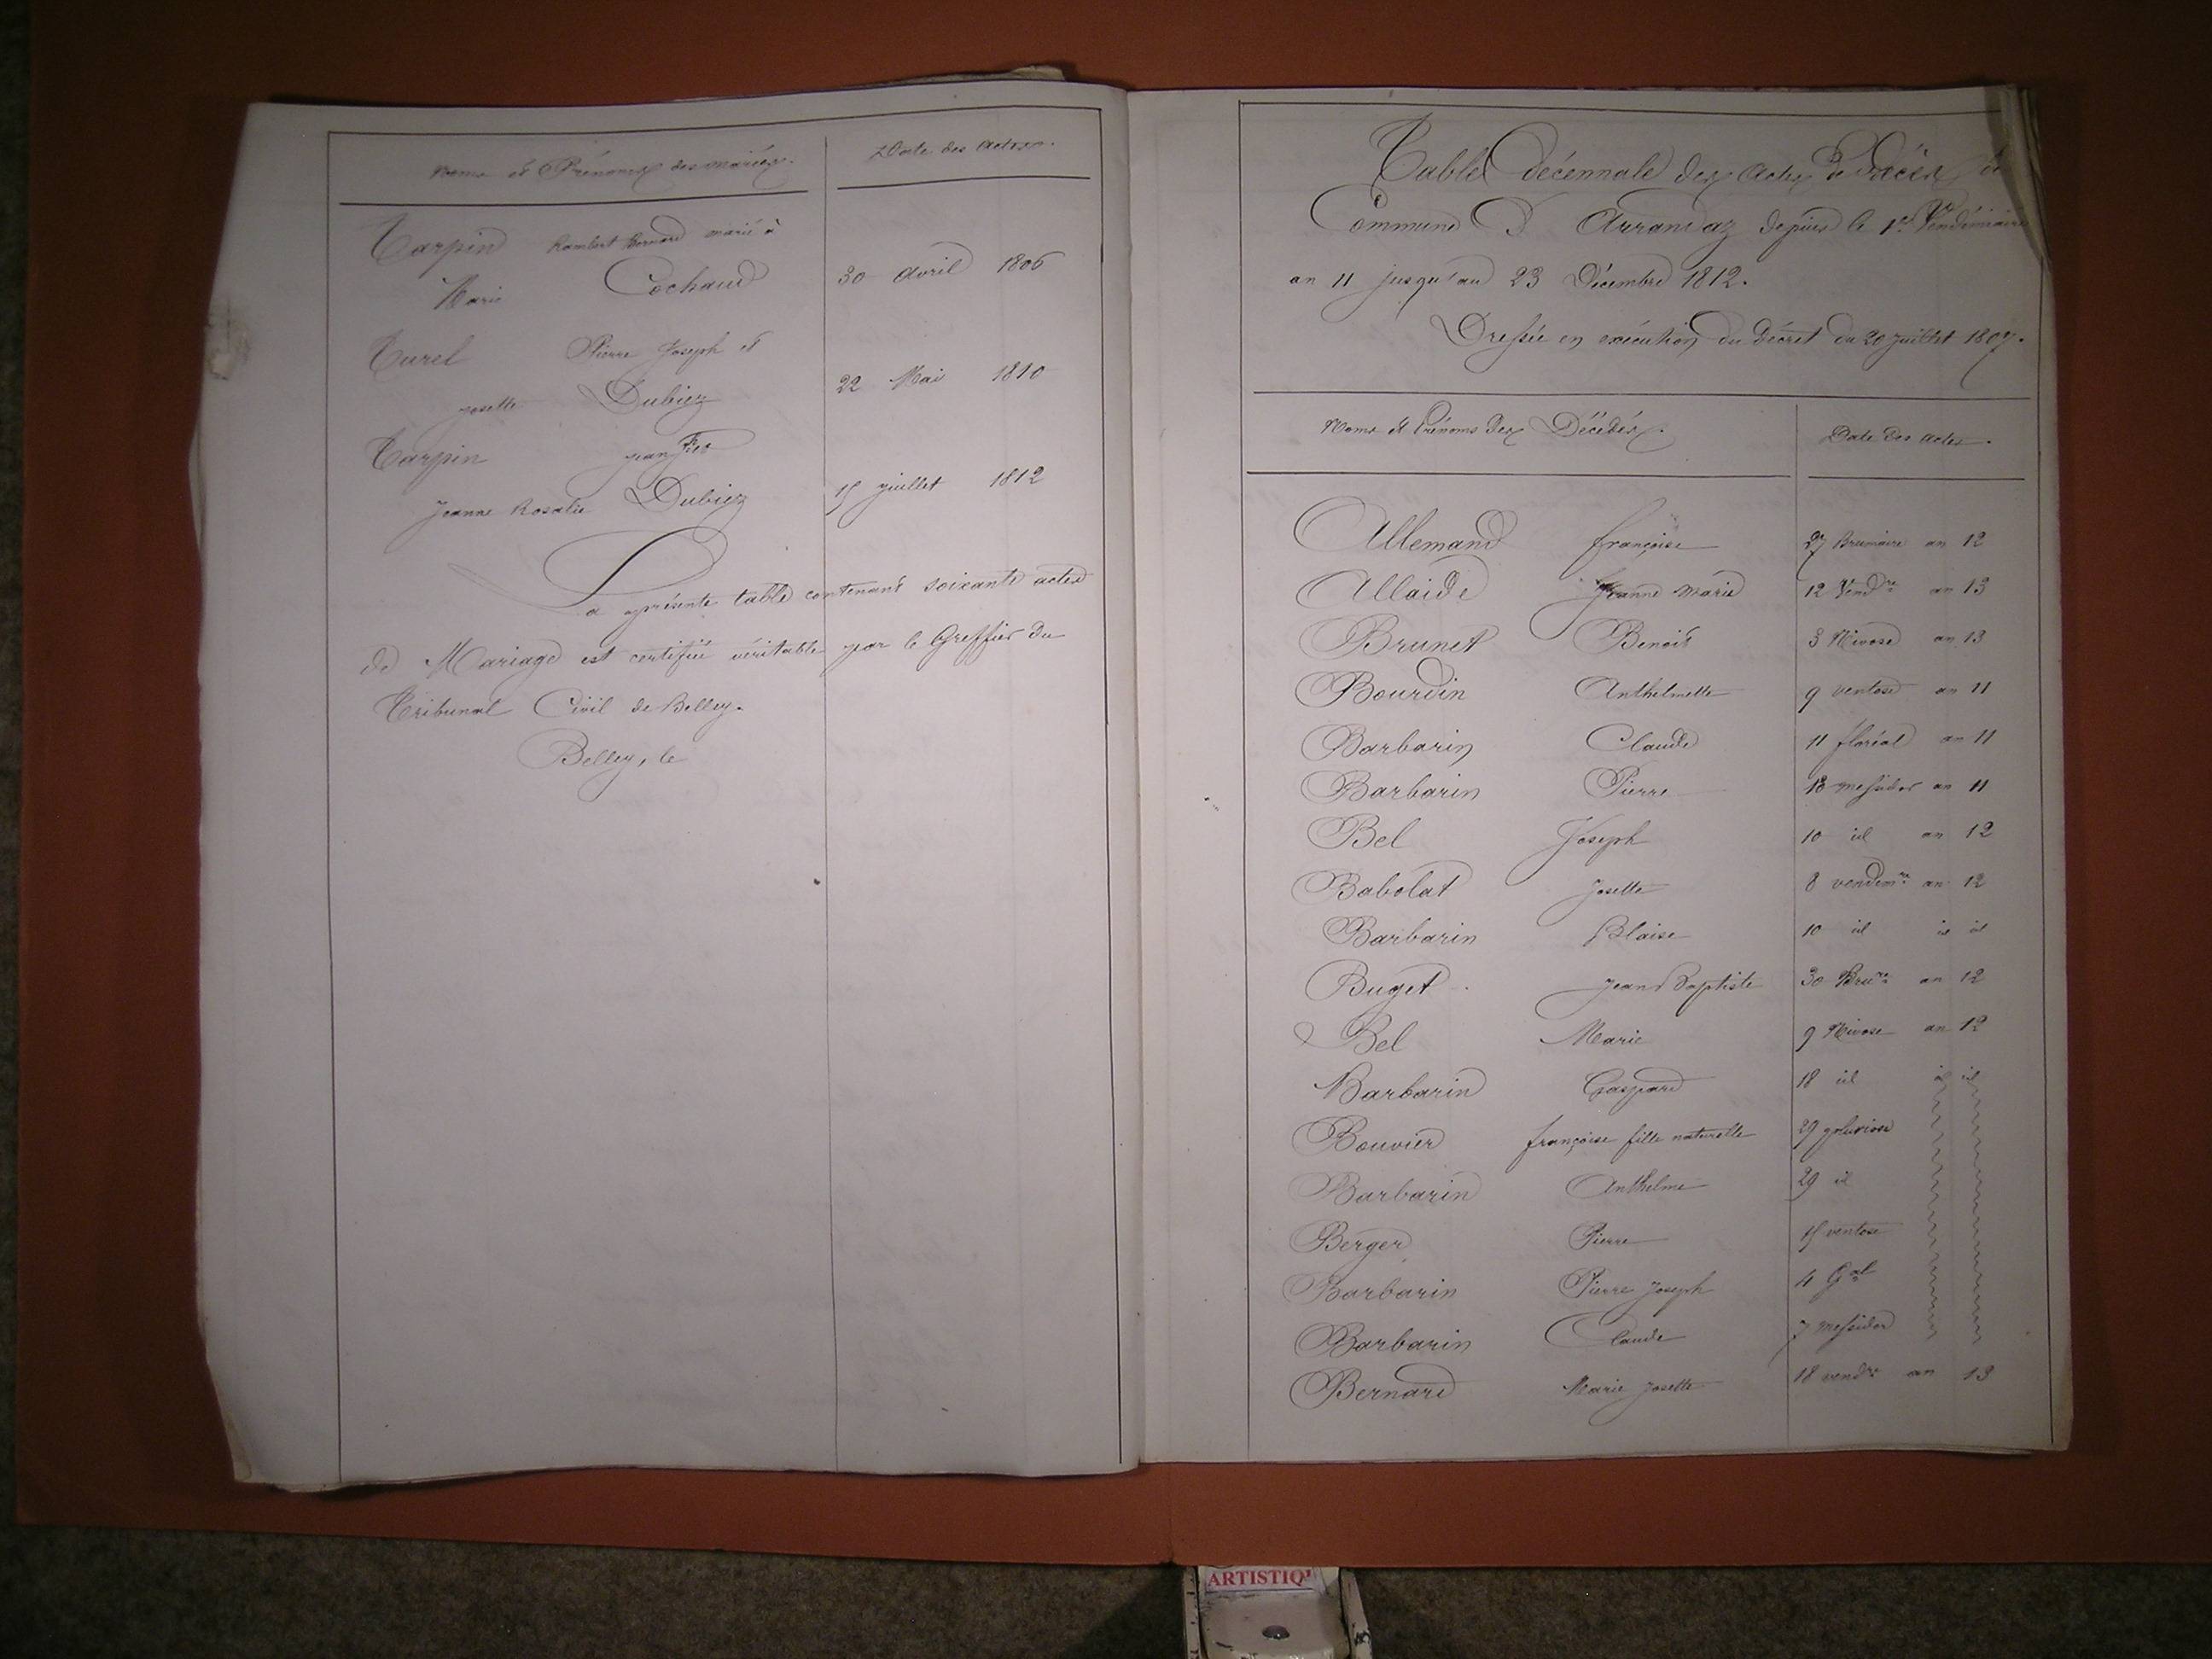 Noms et Prénoms des mariés.
Date des Actes.
Tarpin Rambert Bernard marié à
Marie Cochaud 30 Avril 1806
Turel Pierre Joseph et
josette Dubiez 22 Mai 1810
Tarpin jean
Jeanne Rosalie Dubiez 15 juillet 1812
La présente table contenant soixante actes
de Mariage est certifiée véritable par le Greffier du
Tribunal Civil de Belley.
Belley, le
Table décennale des Actes de Décès de
Commune D' Arrandaz depuis le 1er Vendémiaire
an 11 jusqu'au 23 Décembre 1812.
Dressée en exécution du Décret du 20 juillet 1807.
Noms et Prénoms des Décédés.
Date des actes.
Allemand françoise 27 Brumaire an 12
Allaide Jeanne Marie 12 Vendre an 13
Brunet Benoit 3 Nivose an 13
Bourdin Anthelmette 9 ventose an 11
Barbarin Claude 11 floréal an 11
Barbarin Pierre 18 messidor an 11
Bel Joseph 10 id an 12
Babolat Josette 8 vendemre an 12
Barbarin Blaise 10 id id id
Buget jean Baptiste 30 Brure an 12
Bel Marie 9 Nivose an 12
Barbarin Gaspard 18 id id id
Bouvier françoise fille naturelle 29 pluviose
Barbarin Anthelme 29 id
Berger Pierre 15 ventose
Barbarin Pierre Joseph 4 Gal
Barbarin Claude 7 messidor
Bernard Marie Josette 18 vendre an 13
ARTISTIQ'